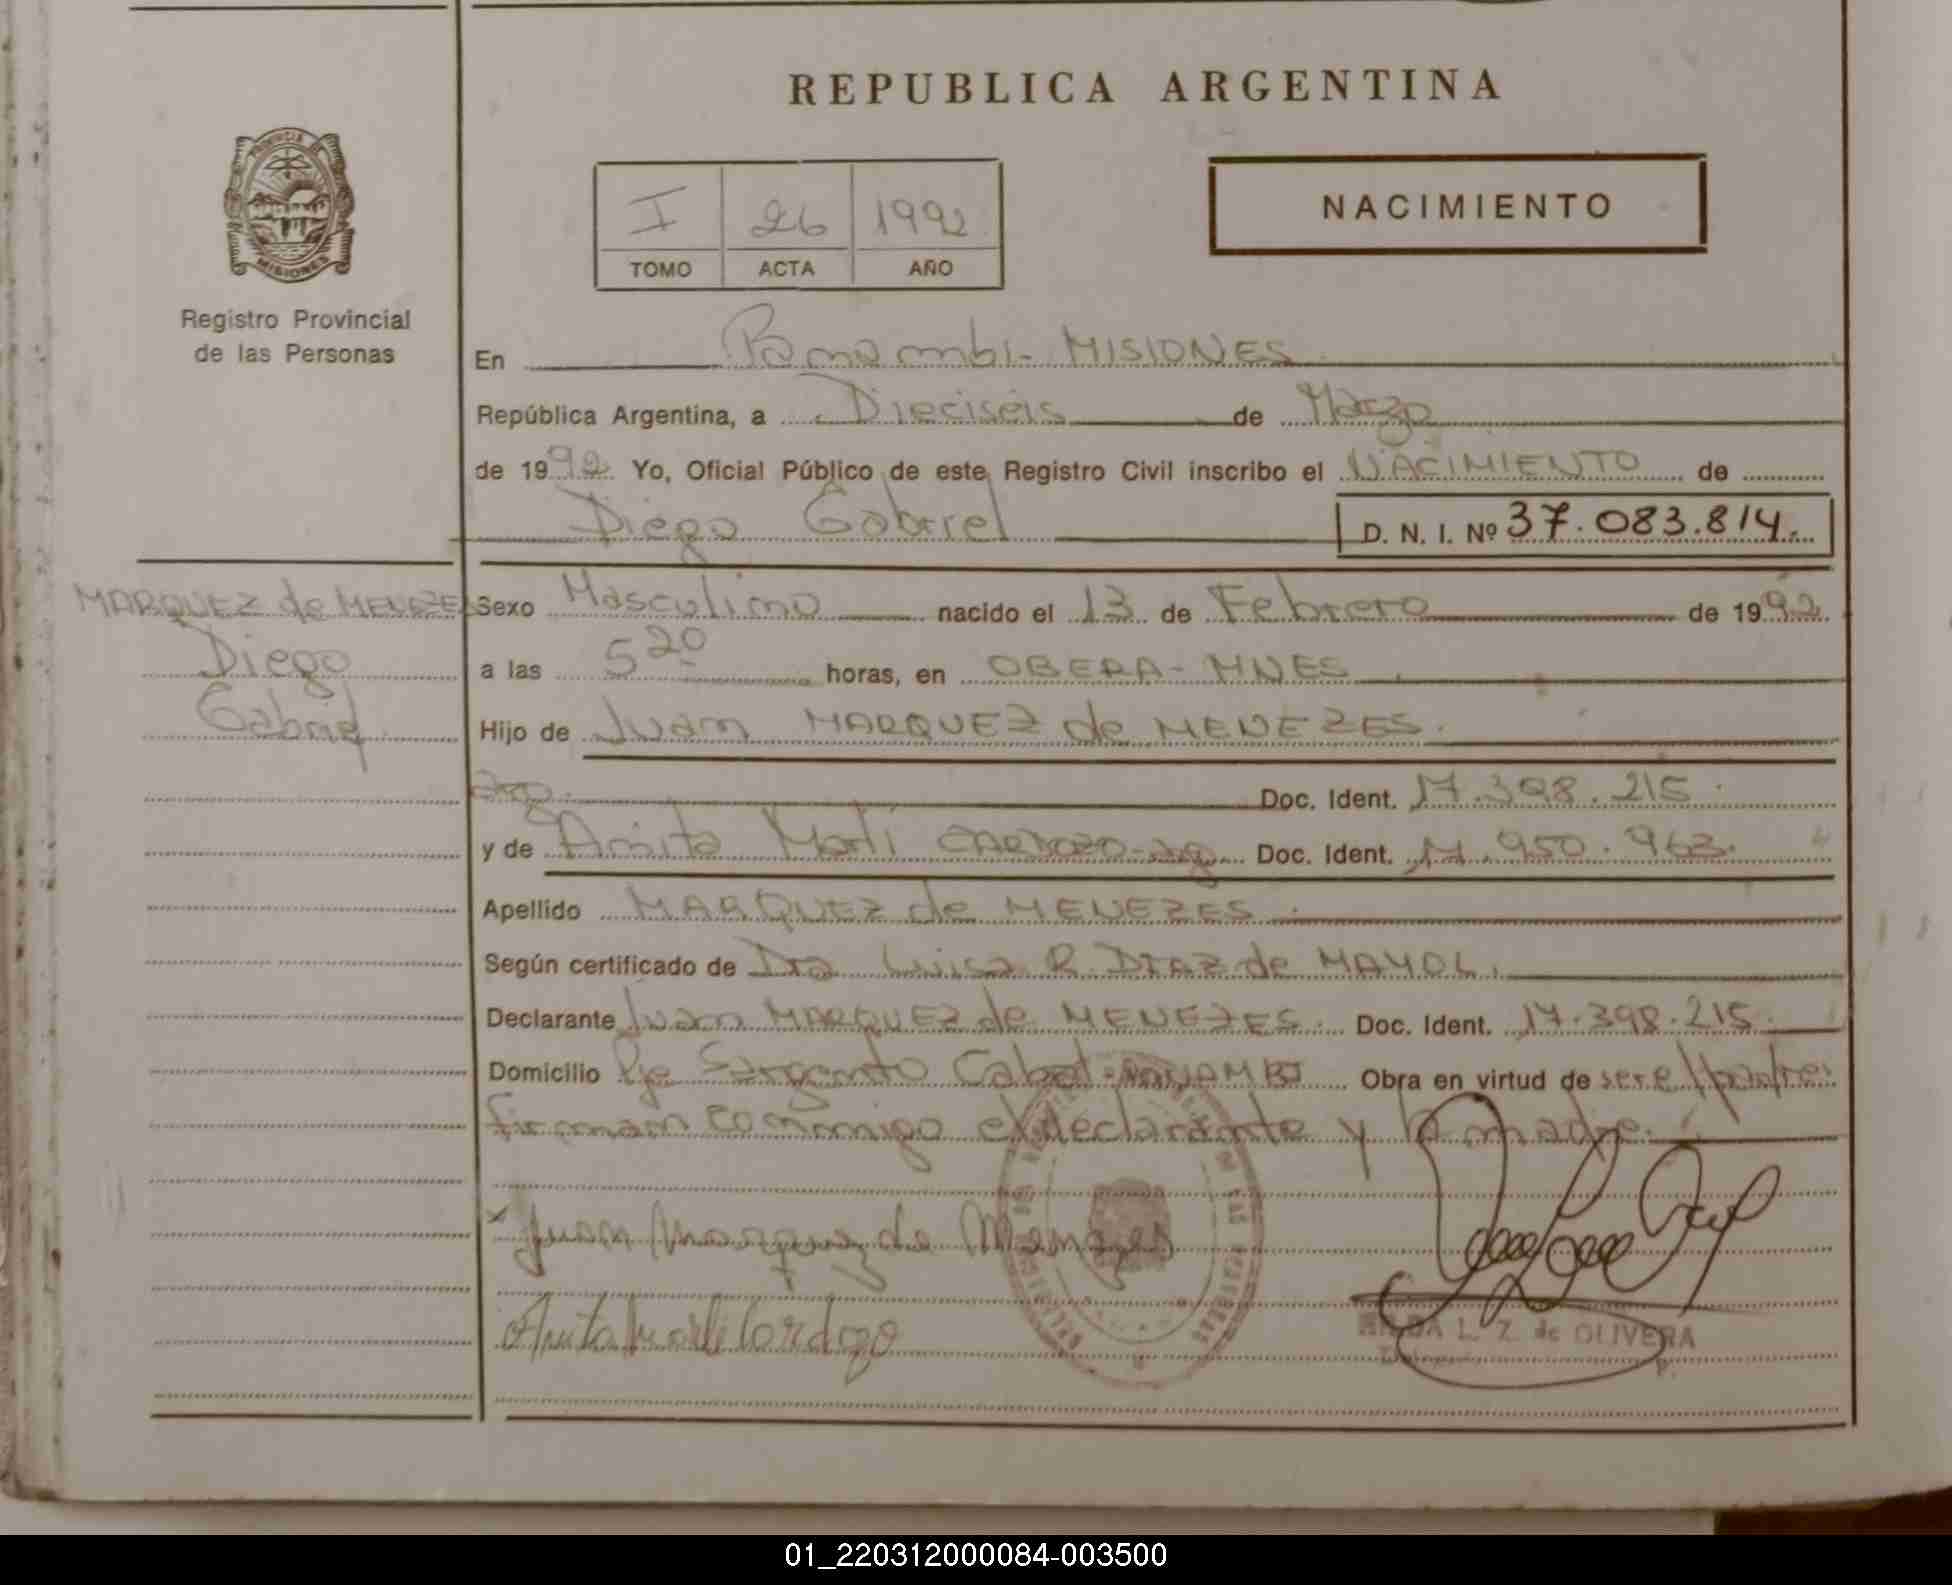 REPUBLICA ARGENTINA
PROVINCIA DE
MISIONES
Registro Provincial
de las Personas
I 26 1992
TOMO ACTA AÑO
NACIMIENTO
En Panambi - MISIONES
República Argentina, a Dieciseis de Marzo
de 1992 Yo, Oficial Público de este Registro Civil inscribo el NACIMIENTO de
Diego Gabriel
D. N. I. Nº 37.083.814
MARQUEZ de MENEZES
Diego
Gabriel
Sexo Masculino nacido el 13 de Febrero de 1992
a las 5 20 horas, en OBERA - MNES
Hijo de Juan MARQUEZ de MENEZES
arg. Doc. Ident. 17.398.215
y de Anita Marli CARDOZO - arg Doc. Ident. 950.963
Apellido MARQUEZ de MENEZES
Según certificado de Dra Luisa R DIAZ de MAYOL
Declarante Juan MARQUEZ de MENEZES Doc. Ident. 17.398.215
Domicilio Pje Sargento Cabral - PANAMBI Obra en virtud de ser el padre
firman conmigo el declarante y la madre
Juan Marquez de Menezes
Anita Marli Cardozo
L. Z. de OLIVERA
01_220312000084-003500